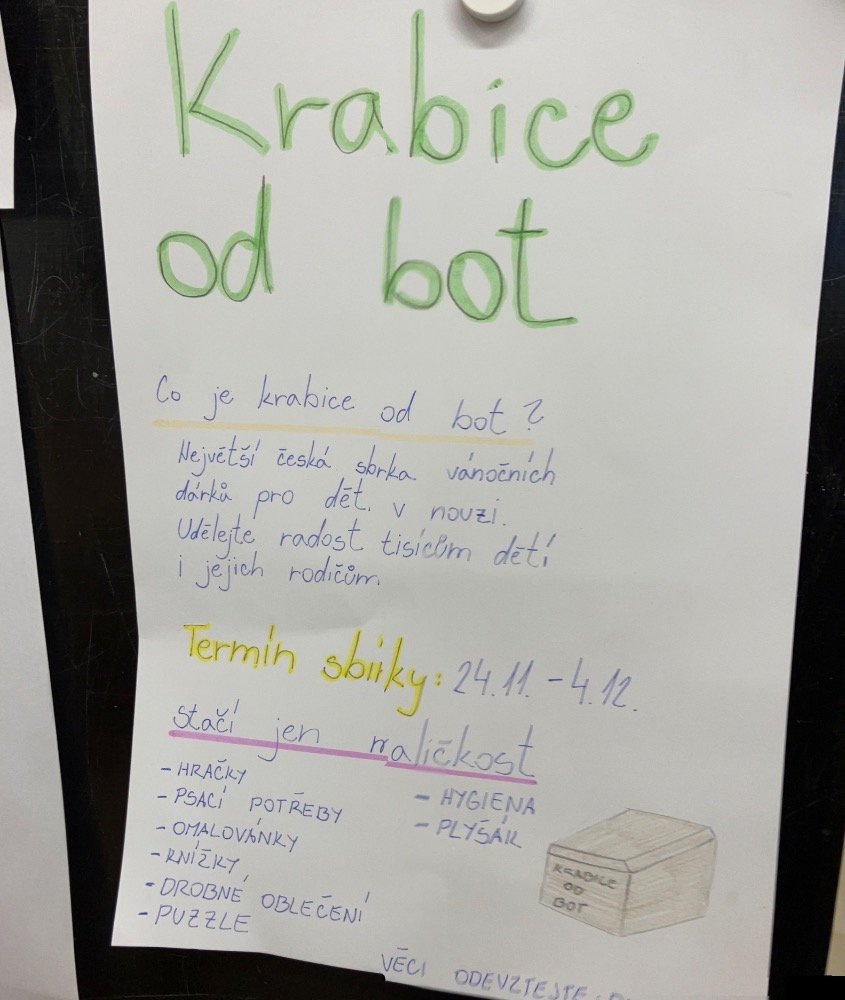 Krabice
od bot
Co je krabice od bot?
Největší česká sbírka vánočních
dárků pro dětí v nouzi.
Udělejte radost tisícům dětí
i jejich rodičům.
Termín sbírky: 24.11. - 4.12.
stačí jen maličkost
- HRAČKY
- PSACÍ POTŘEBY
- OMALOVÁNKY
- KNÍŽKY
- DROBNÉ OBLEČENÍ
- PUZZLE
- HYGIENA
- PLYŠÁK
KRABICE
OD
BOT
VĚCI ODEVZTEJTE: